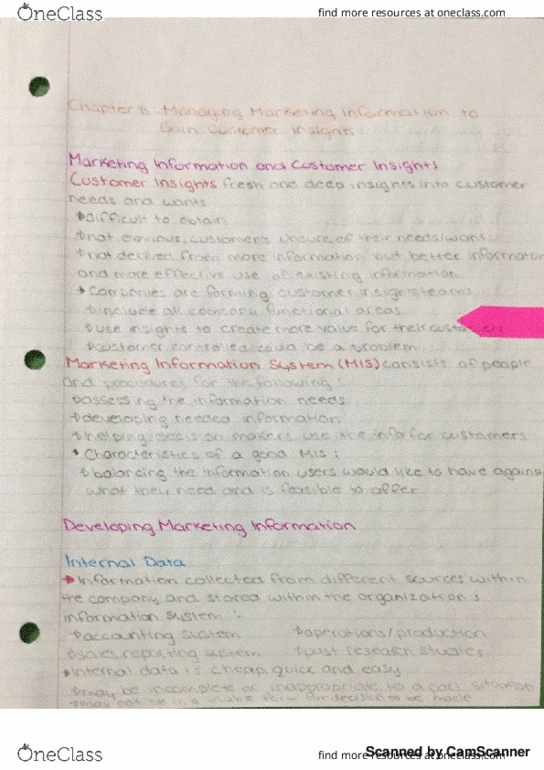 OneClass
find more resources at oneclass.com
Chapter 5: Managing Marketing Information to
Gain Customer Insights
Marketing Information and Customer Insights
Customer Insights fresh and deep insights into customer
needs and wants
difficult to obtain
not obvious, customers unsure of their needs/wants
not derived from more information but better information
and more effective use of existing information
Companies are forming customer insights teams
include all company functional areas
use insights to create more value for their customers
customer controlled could be a problem
Marketing Information System (MIS) consists of people
and procedures for the following:
assessing the information needs
developing needed information
helping decision makers use the info for customers
Characteristics of a good MIS:
balancing the information users would like to have against
what they need and is feasible to offer
Developing Marketing Information
Internal Data
Information collected from different sources within
the company and stored within the organization's
information system:
accounting system operations/production
sales reporting system past research studies
Internal data is cheap, quick and easy
may be incomplete or inappropriate to a part. situation
may not be in a usable form for decision to be made
OneClass
find more resources at oneclass.com
Scanned by CamScanner